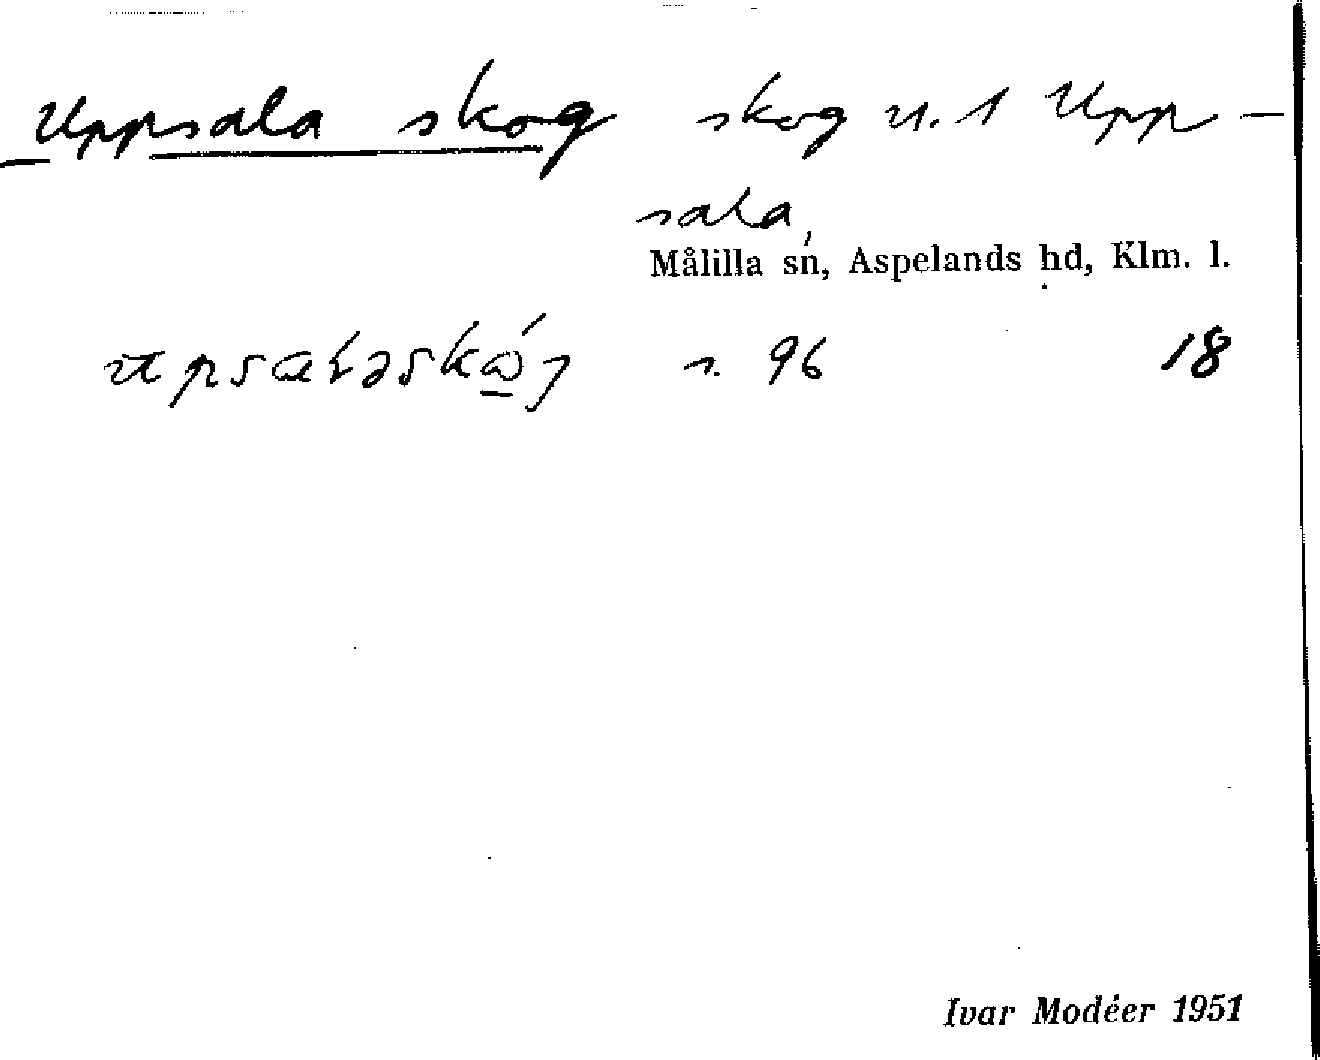 Uppsala skog skog u. 1 Upp-
sala,
Målilla sn, Aspelands hd, Klm. l.
s. 96 18
Ivar Modéer 1951